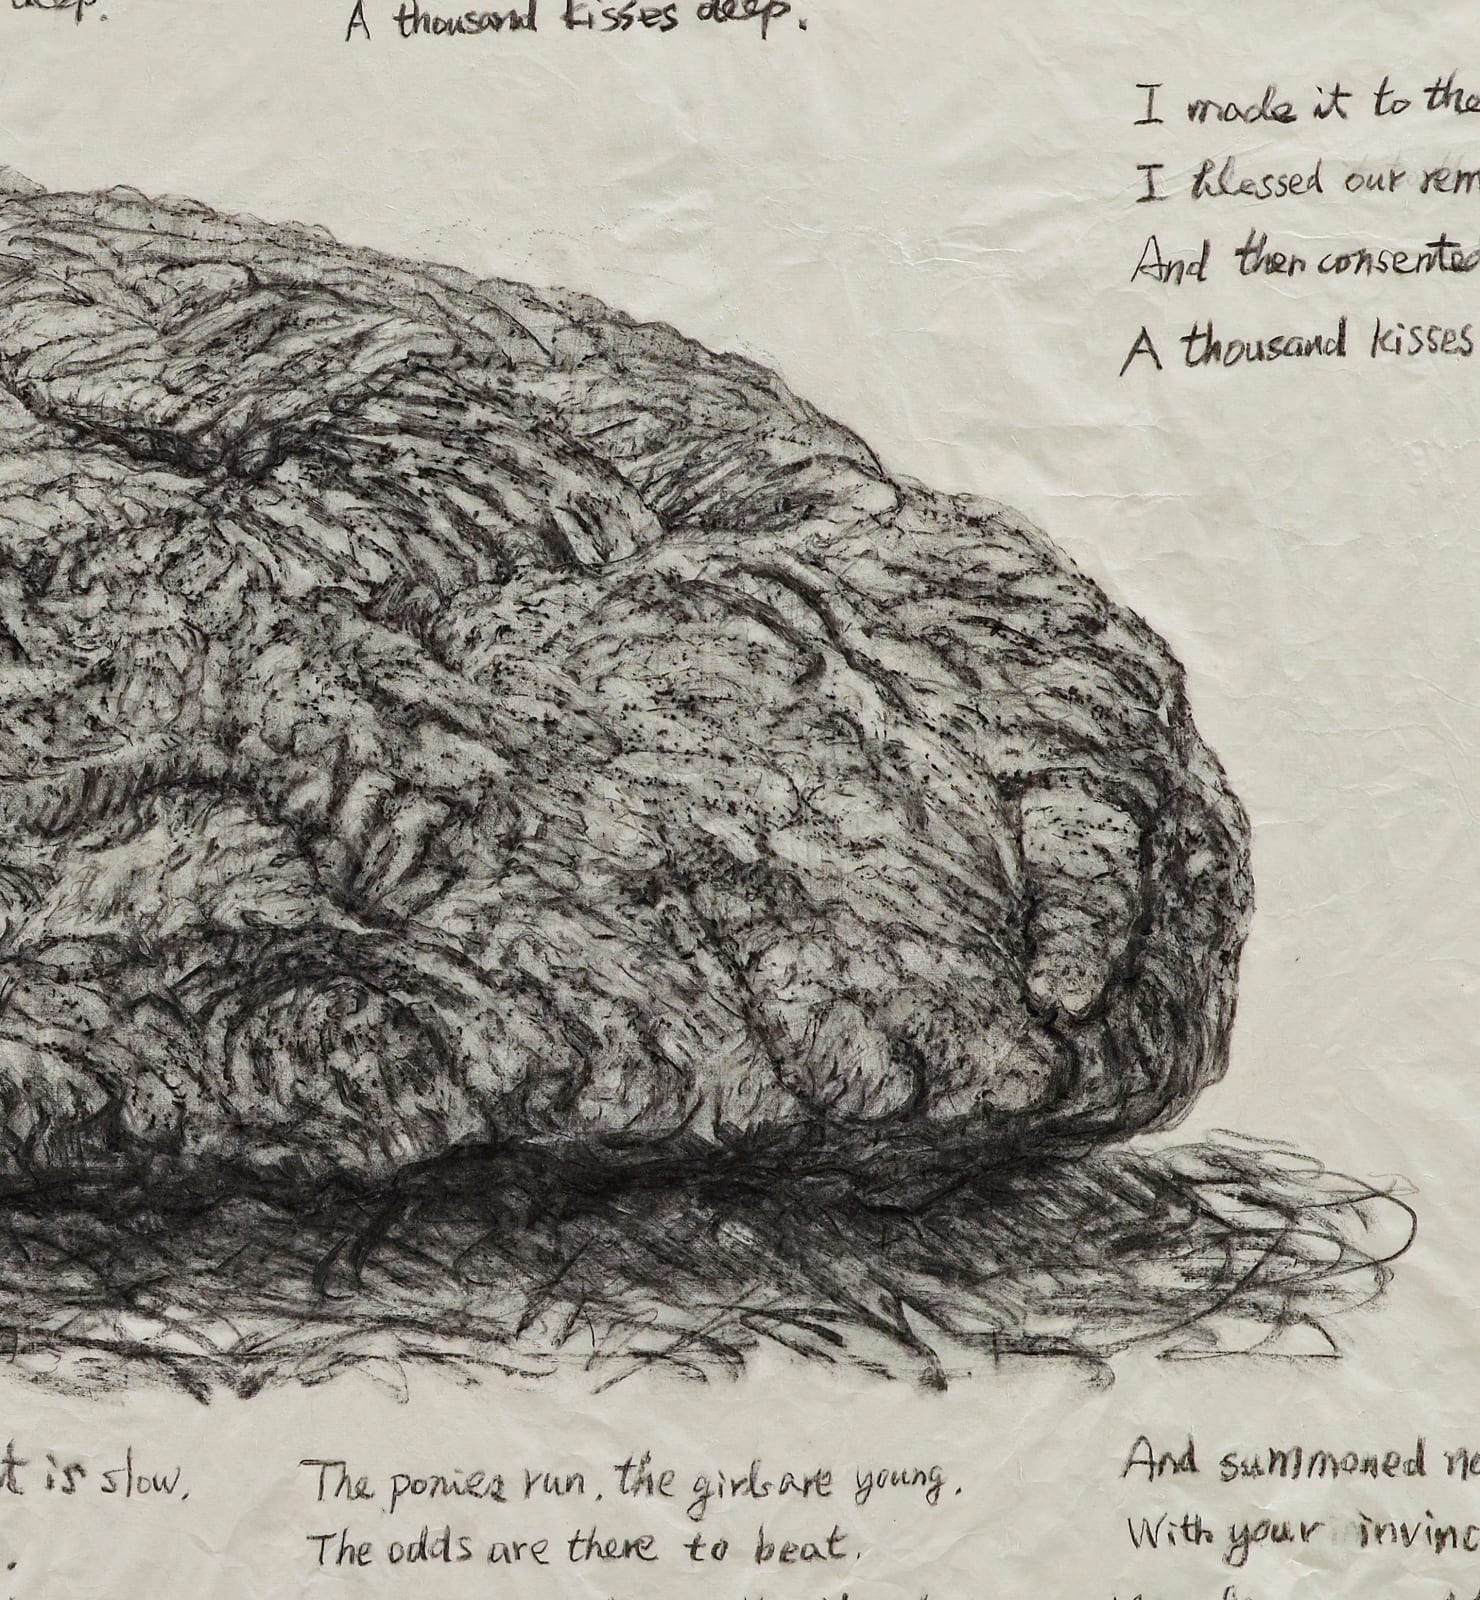 deep.
A thousand kisses deep.
I made it to the
I blessed our rem
And then consented
A thousand kisses
t is slow.
The ponies run, the girls are young.
The odds are there to beat.
And summoned
With your invinc